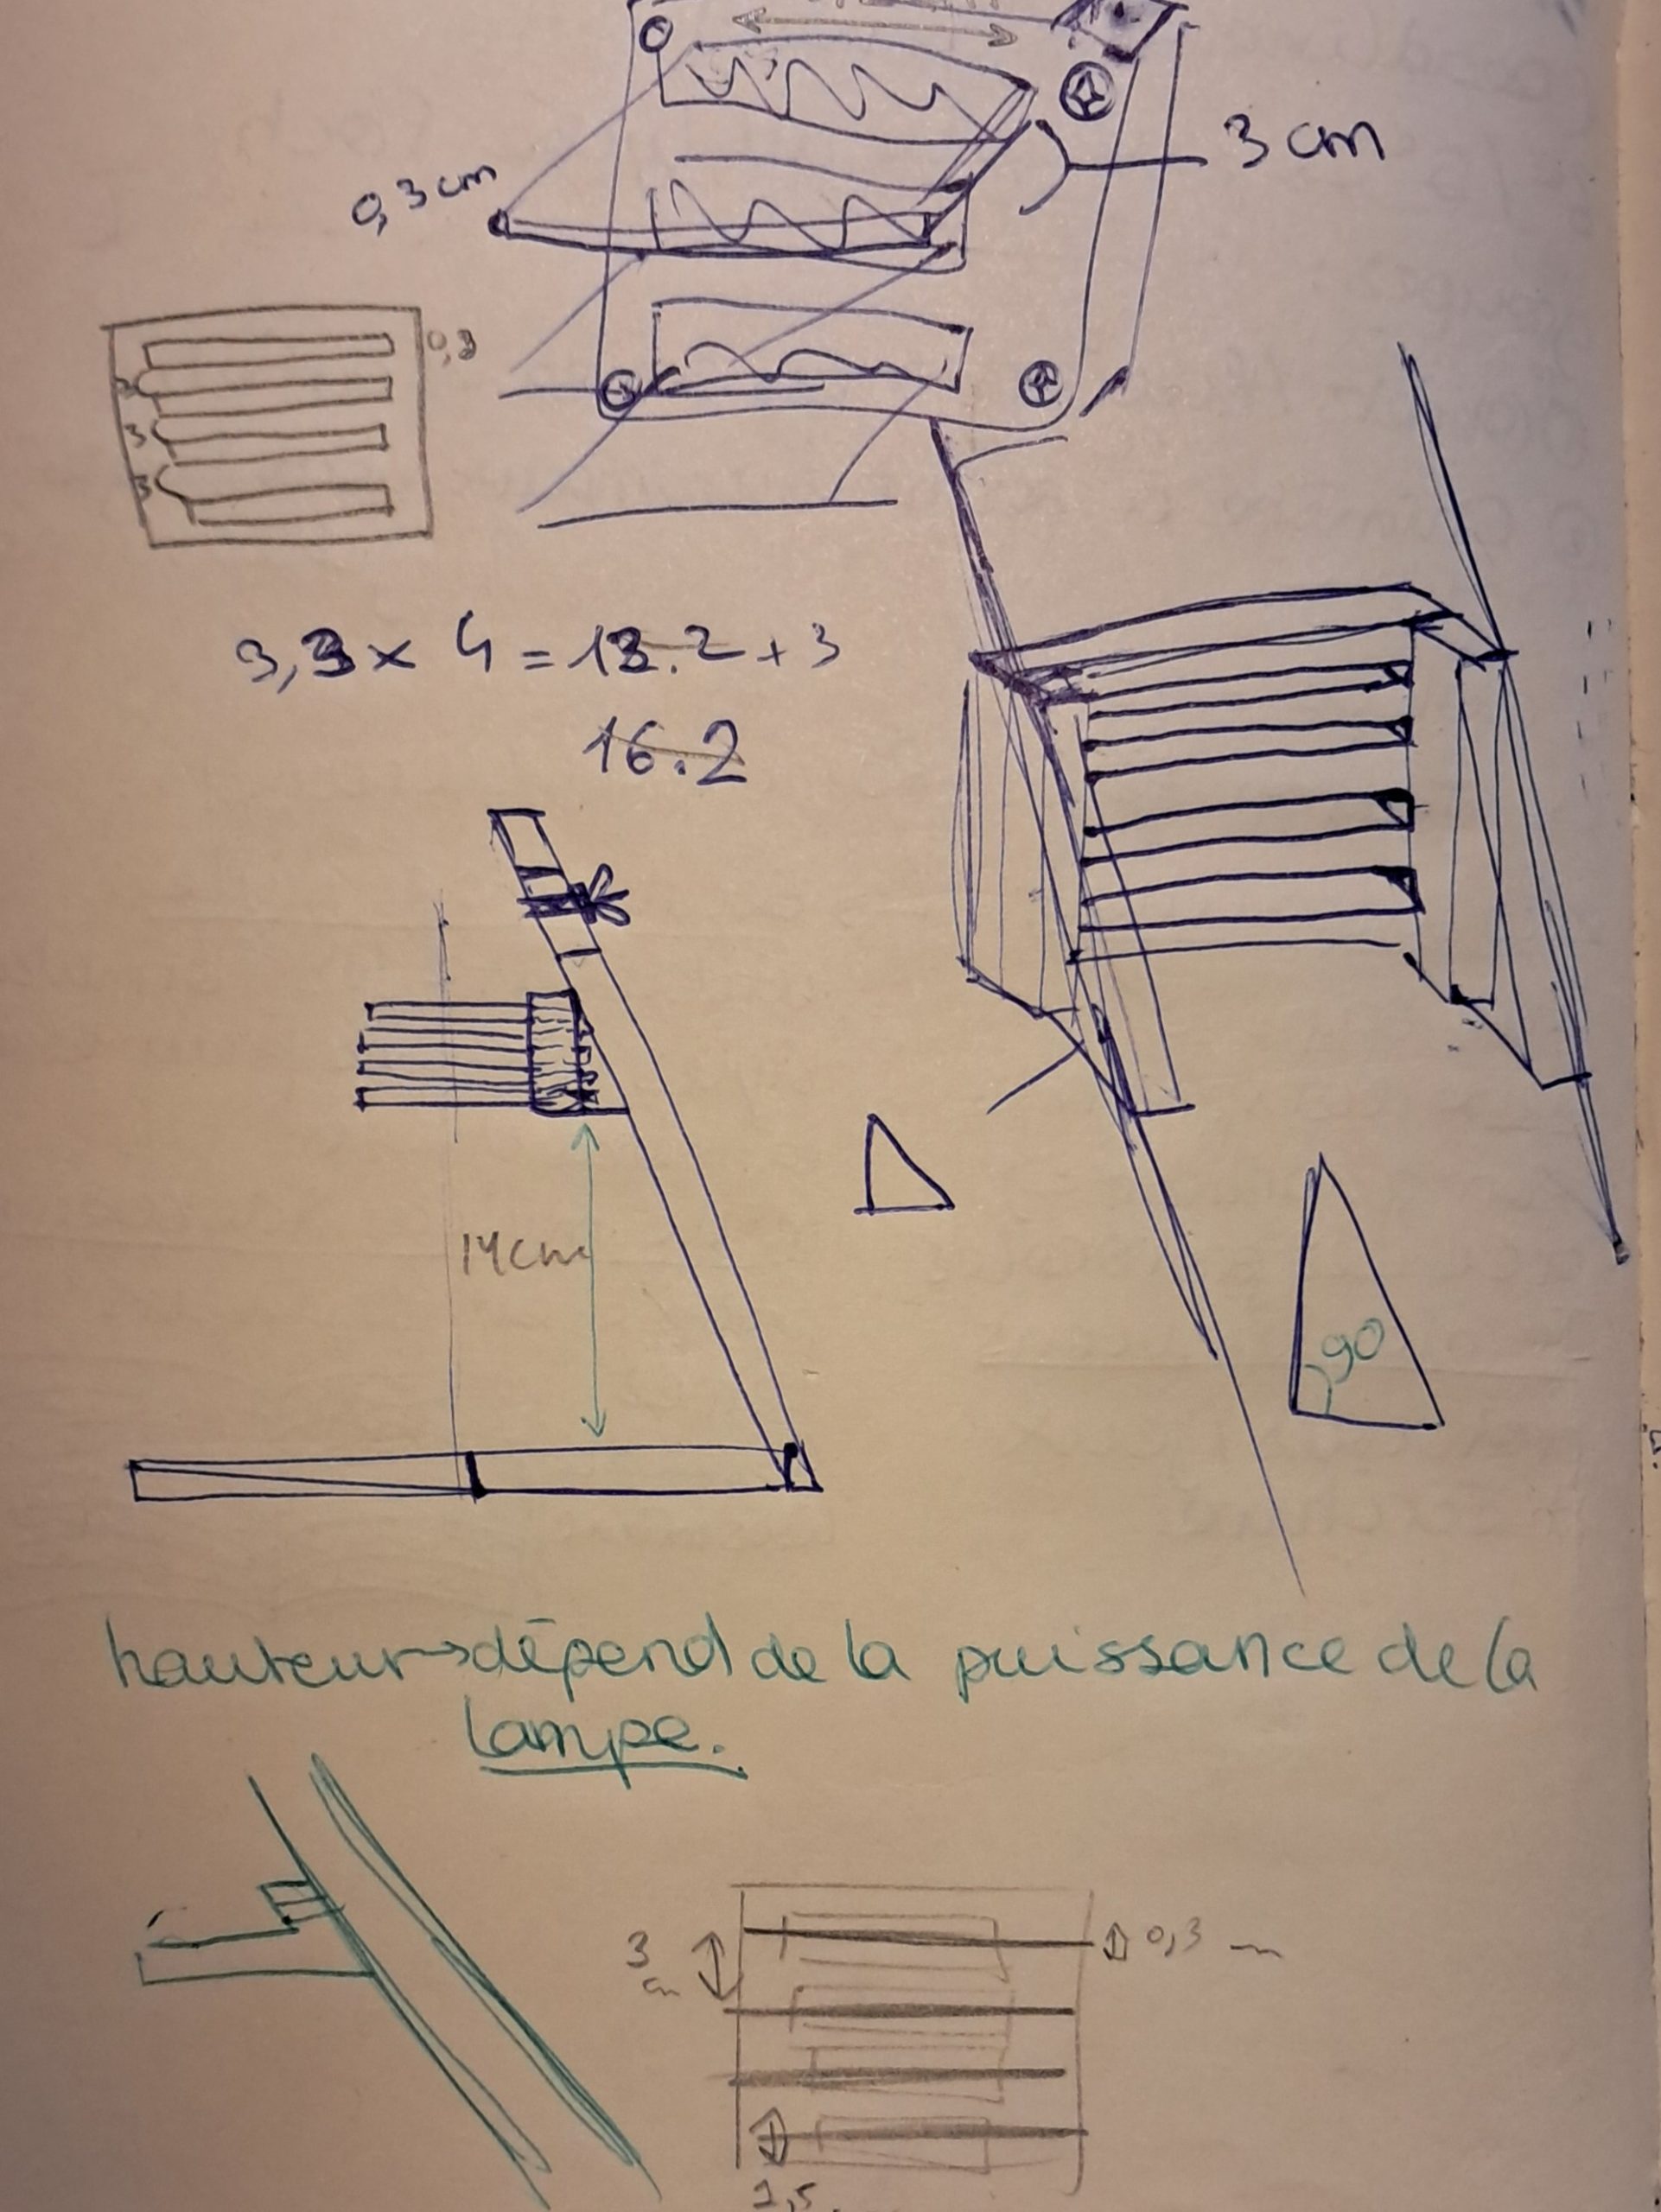 3 cm
0,3 cm
0,3
3
3
3,3 x 4 = 13.2 + 3
16.2
14cm
90
hauteur→dépend de la puissance de la
lampe.
3
cm
0,3
1,5